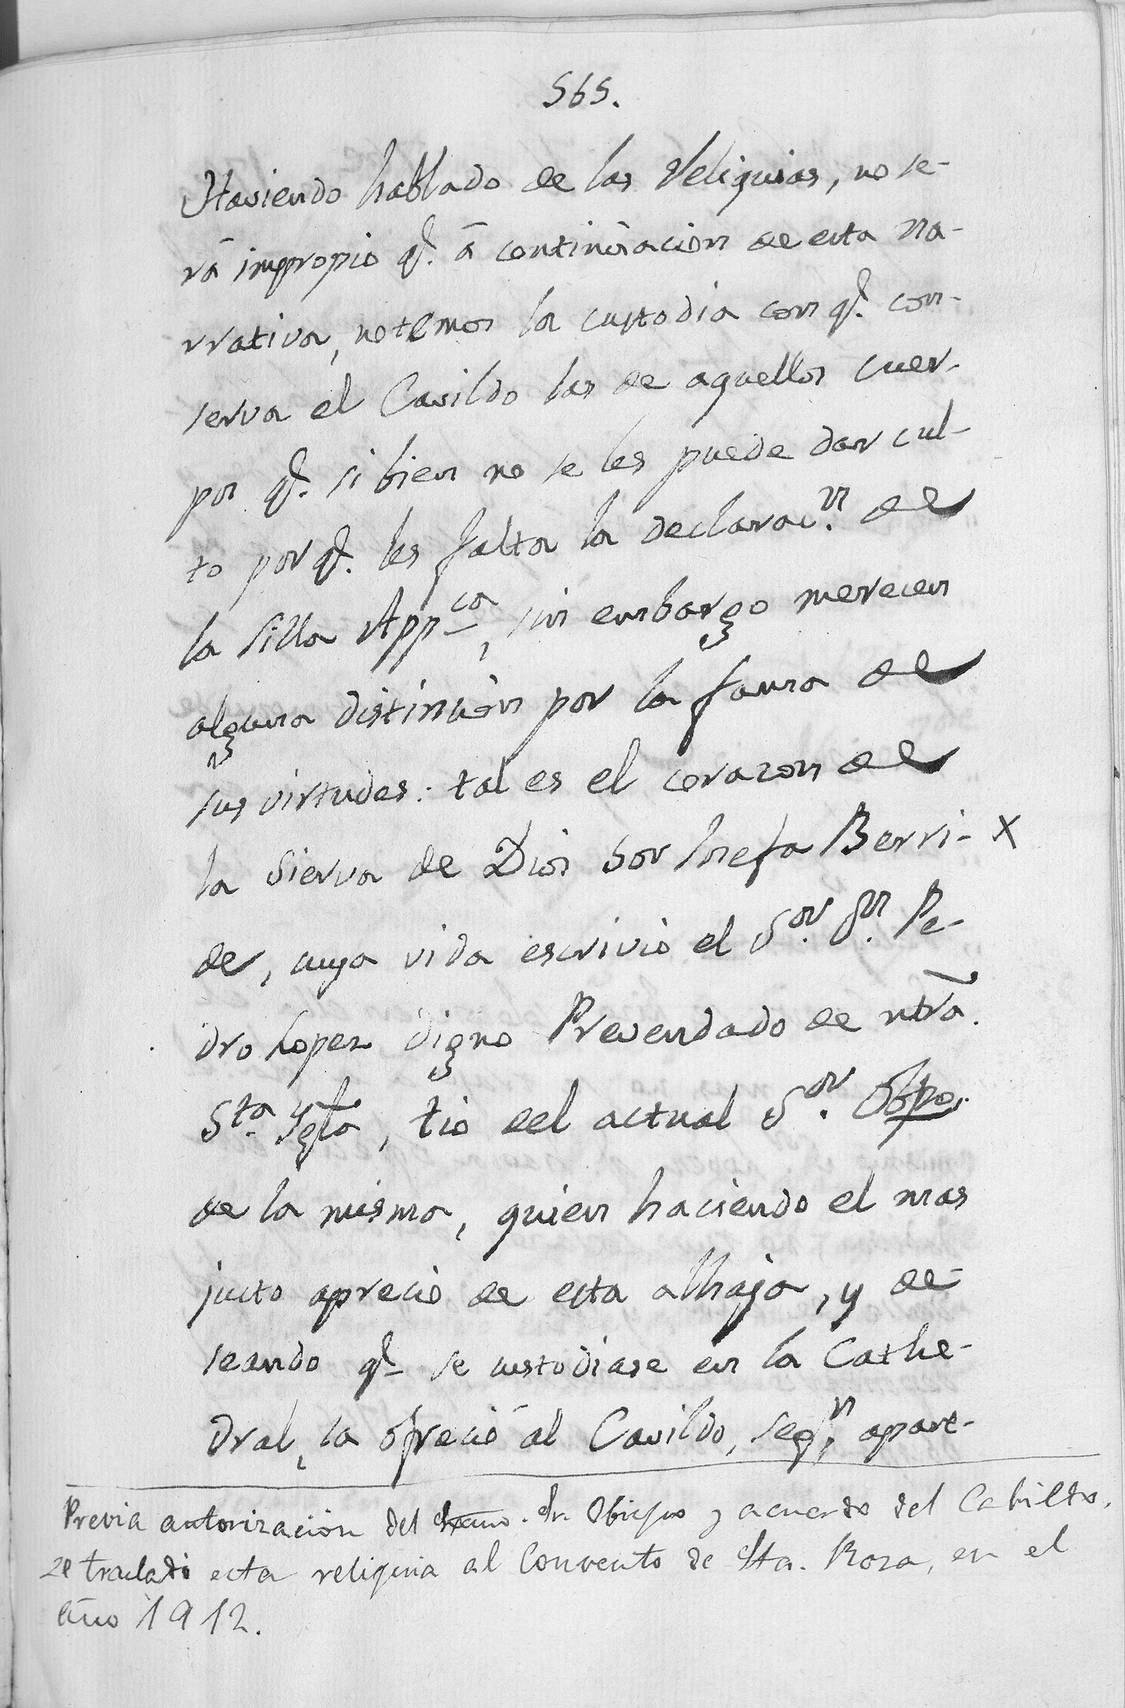 565.
Haviendo hablado de las Reliquias, no se-
rá impropio q.e á continuacion de esta na-
rrativa, notemos la custodia con q.e con-
serva el Cavildo las de aquellos cuer-
pos q.e si bien no se les puede dar cul-
to por q.e les falta la declarac.n de
la Silla App.ca, sin embargo merecen
alguna distinción por la fama de
sus virtudes: tal es el corazon de
la Sierva de Dios Sor Josefa Berri- X
de, cuya vida escrivió el S.or D.n Pe-
dro Lopez digno Prevendado de ntrã.
S.ta Ygla, tio del actual S.or Obpo.
de la misma, quien haciendo el mas
justo aprecio de esta alhaja, y de-
seando q.e se custodiase en la Cathe-
dral, la ofreció al Cavildo, seg.n apare-
Previa autorización del Sr. Obispo y acuerdo del Cabildo,
se trasladó esta reliquia al Convento de Sta. Rosa, en el
año 1912.